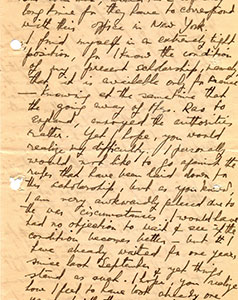 long time for them to correspond
with this office in New York.
I find myself in a extremely tight
position, for I know the condition
of my present scholarship, namely
that it is available only for
knowing at the same time that
the going away of Mrs. Rao to
England, annoyed the authorities
matter. Yet I hope, you would
realize my difficulty. I personally
would not like to go against the
rules that have been laid down for
this scholarship, but as you know,
I am very awkwardly placed due to
the war circumstances, I would have
had no objection to wait & see if the
condition becomes better — but I
have already waited for one year,
since last September & yet things
stand as such. I hope, you realize
how I feel to have lost already one